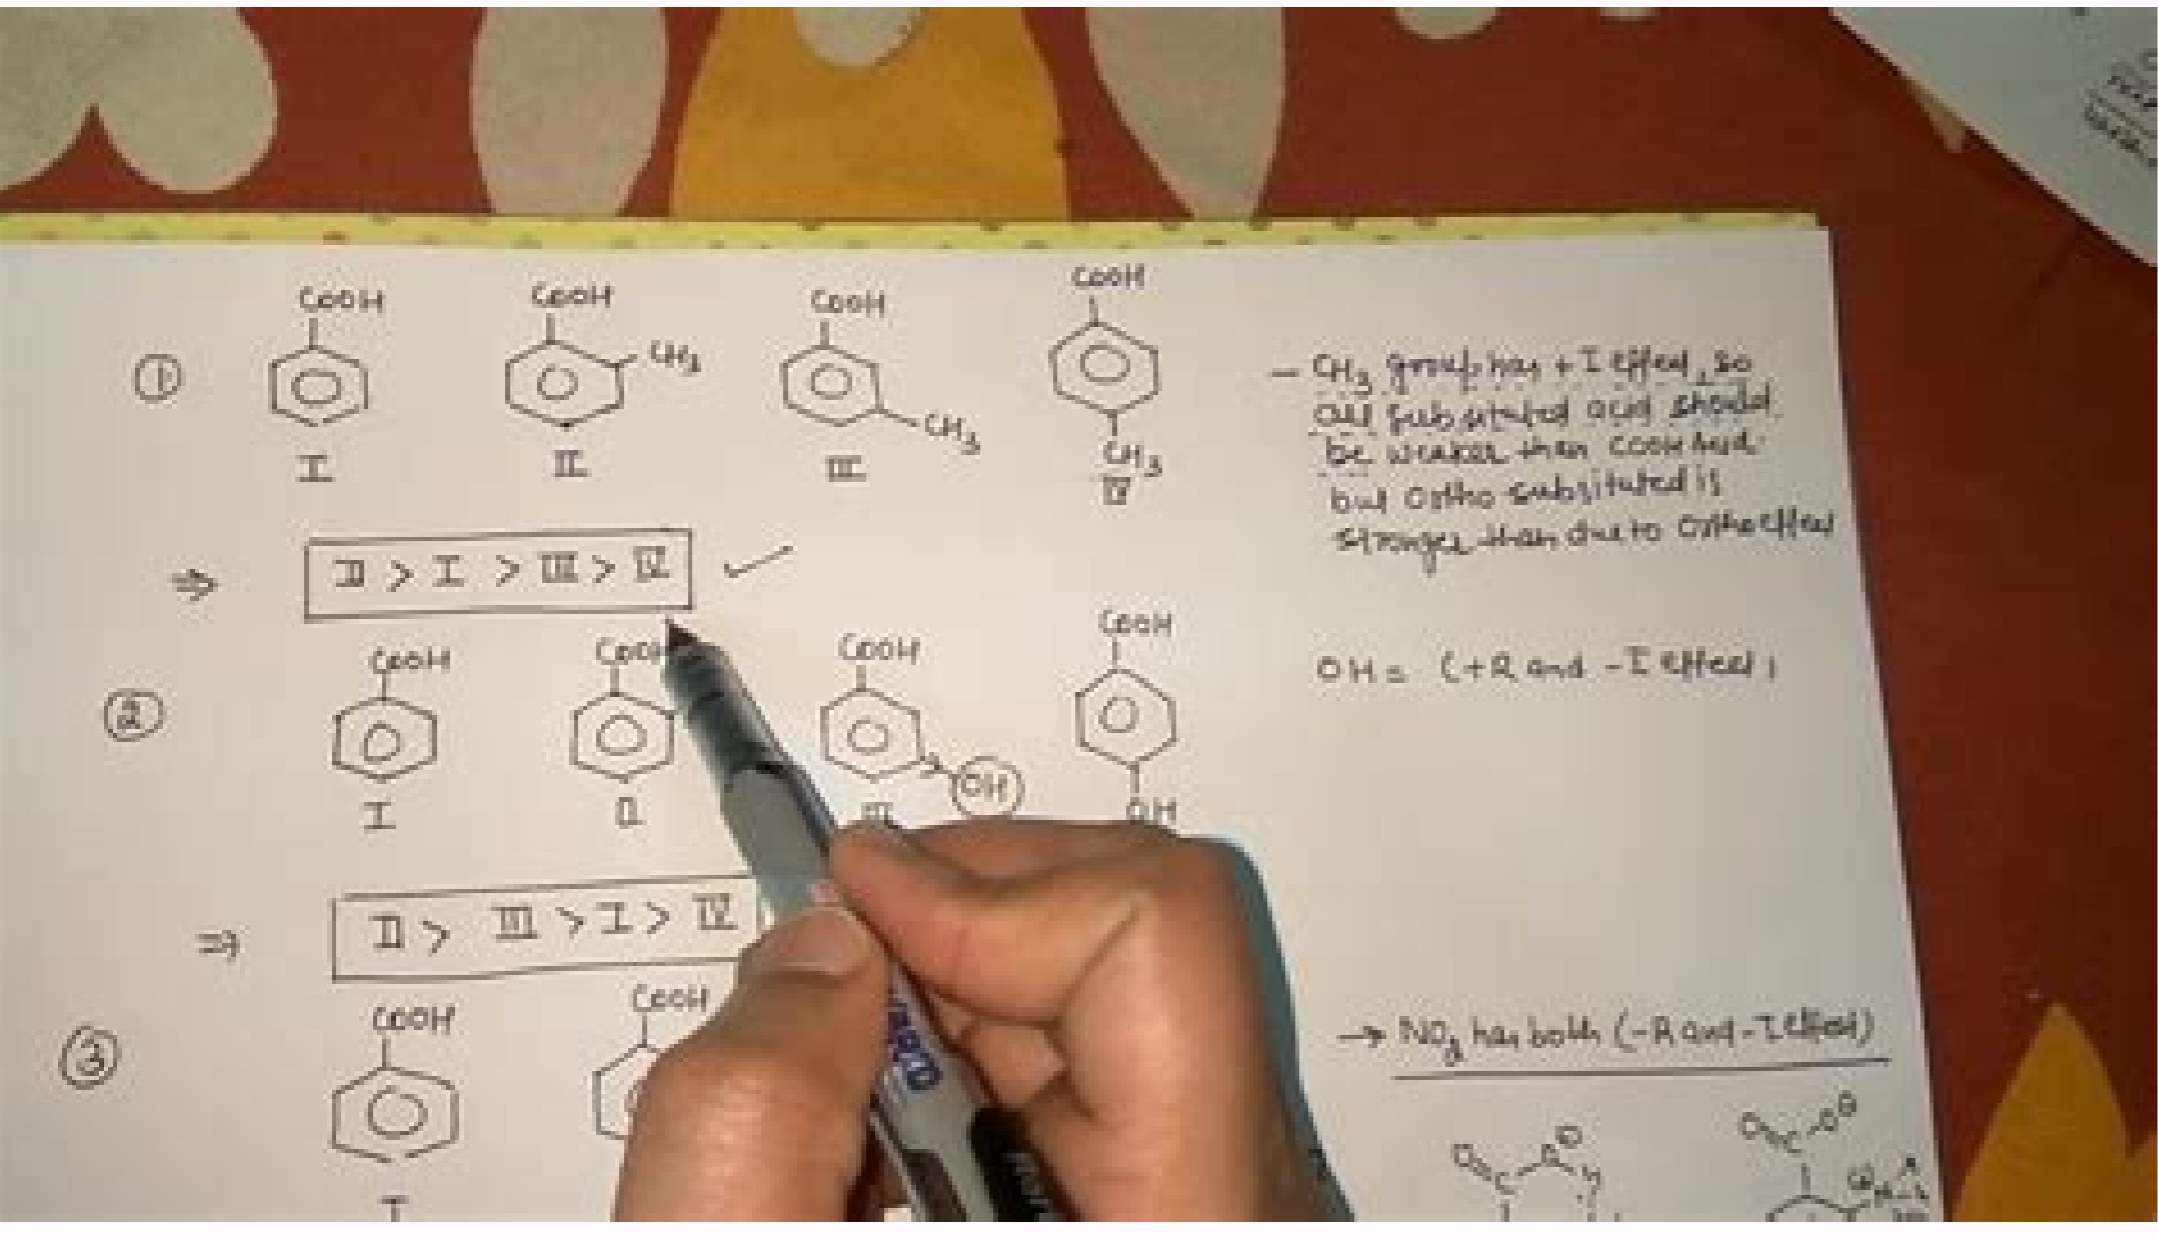 COOH COOH COOH COOH
① CH3 CH3 CH3
I II III IV
- CH3 group has + I effect, so
all substituted acid should
be weaker than COOH Acid.
but Ortho substituted is
stronger than due to Ortho effect
⇒ II > I > III > IV ✓
COOH COOH COOH COOH
② OH OH
I II III
OH = (+R and -I effect)
⇒ II > III > I > IV
COOH COOH
③
I
→ NO2 has both (-R and -I effect)